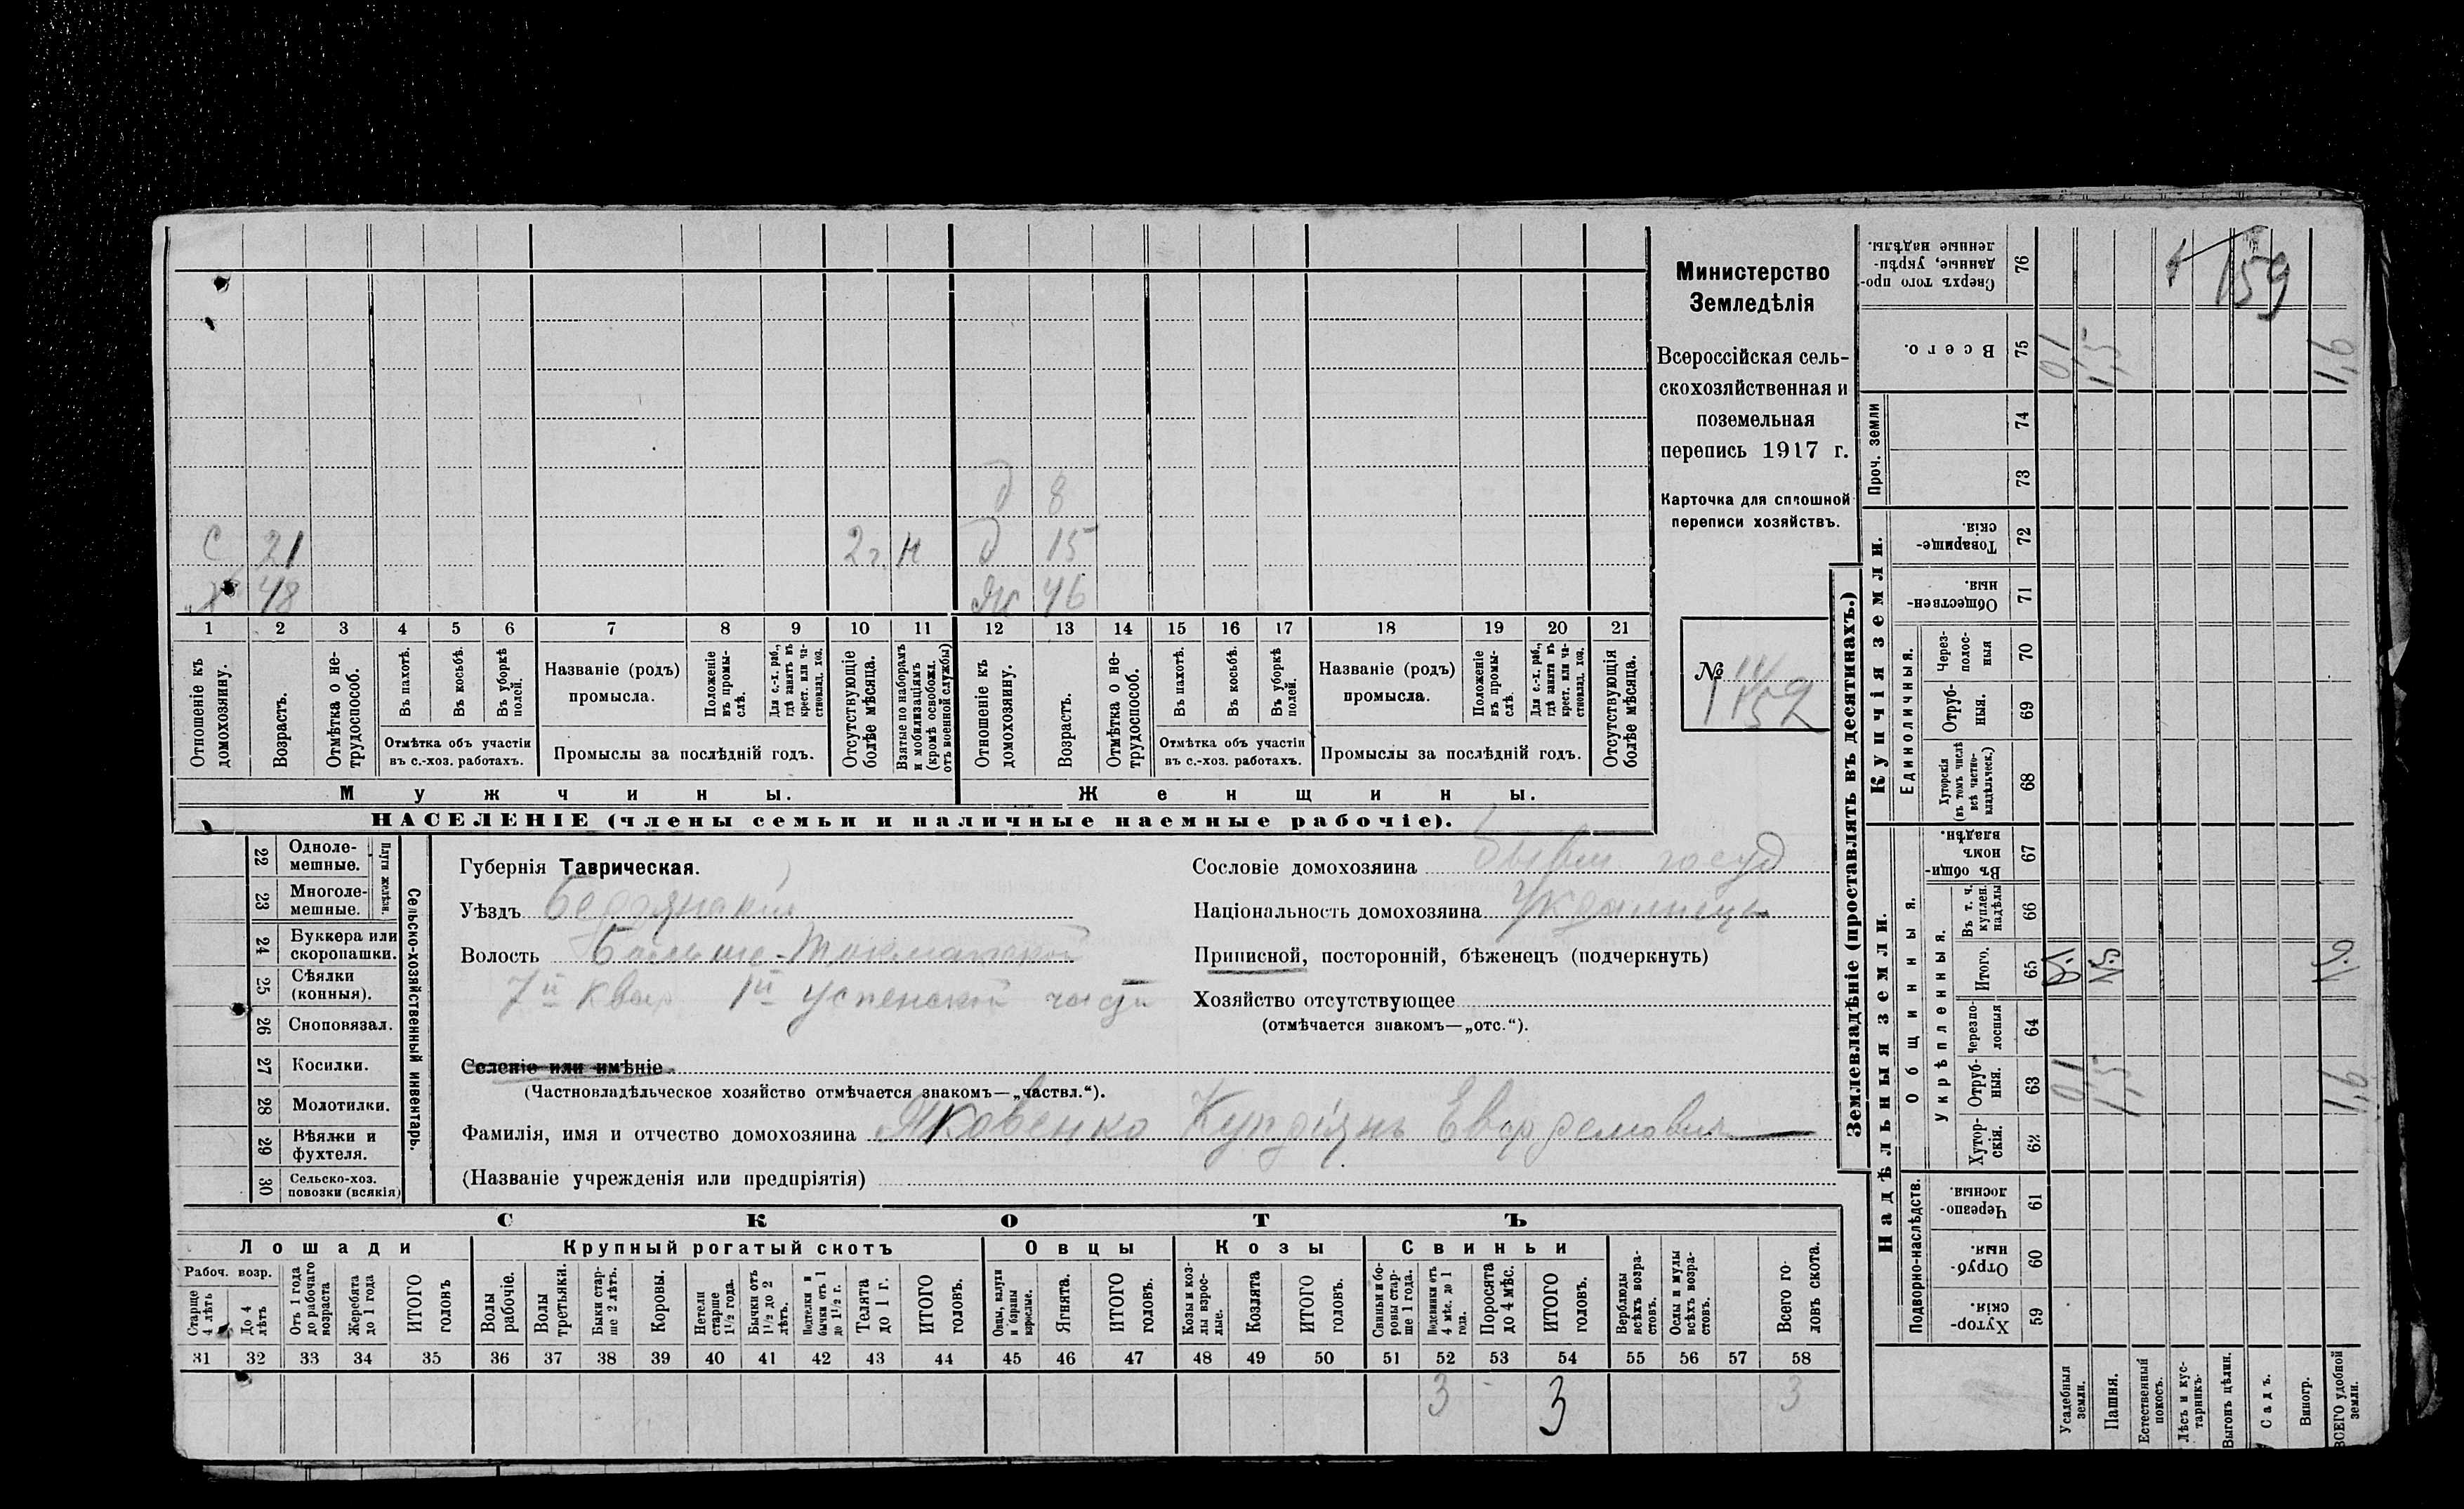 Министерство
Земледѣлія
Всероссійская сель-
скохозяйственная и
поземельная
перепись 1917 г.
Карточка для сплошной
переписи хозяйствъ.
№
д 8
С 21 2 г. н д 15
Х 48 Ж 46
1 2 3 4 5 6 7 8 9 10 11 12 13 14 15 16 17 18 19 20 21
Отношеніе къ домохозяину.
Возрастъ.
Отмѣтка о не-трудоспособ.
Въ пахотѣ.
Въ косьбѣ.
Въ уборкѣ полей.
Отмѣтка объ участіи
въ с.-хоз. работахъ.
Названіе (родъ)
промысла.
Положеніе въ промы-слѣ.
Для с.-х. раб., гдѣ занятъ въ крест. или ча-стновлад. хоз.
Промыслы за послѣдній годъ.
Отсутствующіе болѣе мѣсяца.
Взятые по наборамъ и мобилизаціямъ (кромѣ освобожд. отъ военной службы)
Отношеніе къ домохозяину.
Возрастъ.
Отмѣтка о не-трудоспособ.
Въ пахотѣ.
Въ косьбѣ.
Въ уборкѣ полей.
Отмѣтка объ участіи
въ с.-хоз. работахъ.
Названіе (родъ)
промысла.
Положеніе въ промы-слѣ.
Для с.-х. раб., гдѣ занята въ крест. или ча-стновлад. хоз.
Промыслы за послѣдній годъ.
Отсутствующія болѣе мѣсяца.
Мужчины. Женщины.
НАСЕЛЕНІЕ (члены семьи и наличные наемные рабочіе).
22 Одноле-мешные.
23 Многоле-мешные.
Плуги желѣзн.
24 Буккера или скоропашки.
25 Сѣялки (конныя).
26 Сноповязал.
27 Косилки.
28 Молотилки.
29 Вѣялки и фухтеля.
30 Сельско-хоз. повозки (всякія)
Сельско-хозяйственный инвентарь.
Губернія Таврическая.
Уѣздъ Бердянский
Волость Больше-Токмакской
7й квар 1й Успенской части
Селеніе или имѣніе
(Частновладѣльческое хозяйство отмѣчается знакомъ—„частвл.“).
Фамилія, имя и отчество домохозяина Яковенко
(Названіе учрежденія или предпріятія)
Сословіе домохозяина Бывш. госуд
Національность домохозяина Украинецъ
Приписной, посторонній, бѣженецъ (подчеркнуть)
Хозяйство отсутствующее
(отмѣчается знакомъ—„отс.“).
СКОТЪ
Лошади Крупный рогатый скотъ Овцы Козы Свиньи
Рабоч. возр.
Старше 4 лѣтъ
До 4 лѣтъ
Отъ 1 года до рабочаго возраста
Жеребята до 1 года
ИТОГО головъ
Волы рабочіе.
Волы третьяки.
Быки стар-ше 2 лѣтъ.
Коровы.
Нетели старше 1½ года.
Бычки отъ 1½ до 2 лѣтъ.
Подтелки и бычки отъ 1 до 1½ г.
Телята до 1 г.
ИТОГО головъ.
Овцы, валухи и бараны взрослые.
Ягнята.
ИТОГО головъ.
Козы и коз-лы взрос-лые.
Козлята
ИТОГО головъ.
Свиньи и бо-ровы стар-ше 1 года.
Подсвинки отъ 4 мѣс. до 1 года.
Поросята до 4 мѣс.
ИТОГО головъ.
Верблюды всѣхъ возра-стовъ.
Ослы и мулы всѣхъ возра-стовъ.
Всего го-ловъ скота.
31 32 33 34 35 36 37 38 39 40 41 42 43 44 45 46 47 48 49 50 51 52 53 54 55 56 57 58
3 - 3 3
Землевладѣніе (проставлять въ десятинахъ.)
Надѣльныя земли.
Купчія земли.
Проч. земли
Подворно-наслѣдств.
Общинныя.
Укрѣпленныя.
Единоличныя.
Хутор-скія. 59
Отруб-ныя. 60
Черезпо-лосныя. 61
Хутор-скія. 62
Отруб-ныя. 63 0,1 1,5 1,6
Черезпо-лосныя 64
Итого. 65 0,1 1,5 1,6
Въ т. ч. куплен. надѣлы 66
Въ общин-номъ владѣн. 67
Хуторскія (въ томъ числѣ всѣ частно-владѣльческ.) 68
Отруб-ныя. 69
Через-полос-ныя 70
Обществен-ныя. 71
Товарище-скія. 72
73
74
Всего. 75 0,1 1,5 1,6
Сверхъ того про-данные, укрѣп-ленные надѣлы. 76
159
Усадебныя земли.
Пашня.
Естественный покосъ.
Лѣсъ и кус-тарникъ.
Выгонъ цѣлин.
Садъ.
Виногр.
ВСЕГО удобной земли.